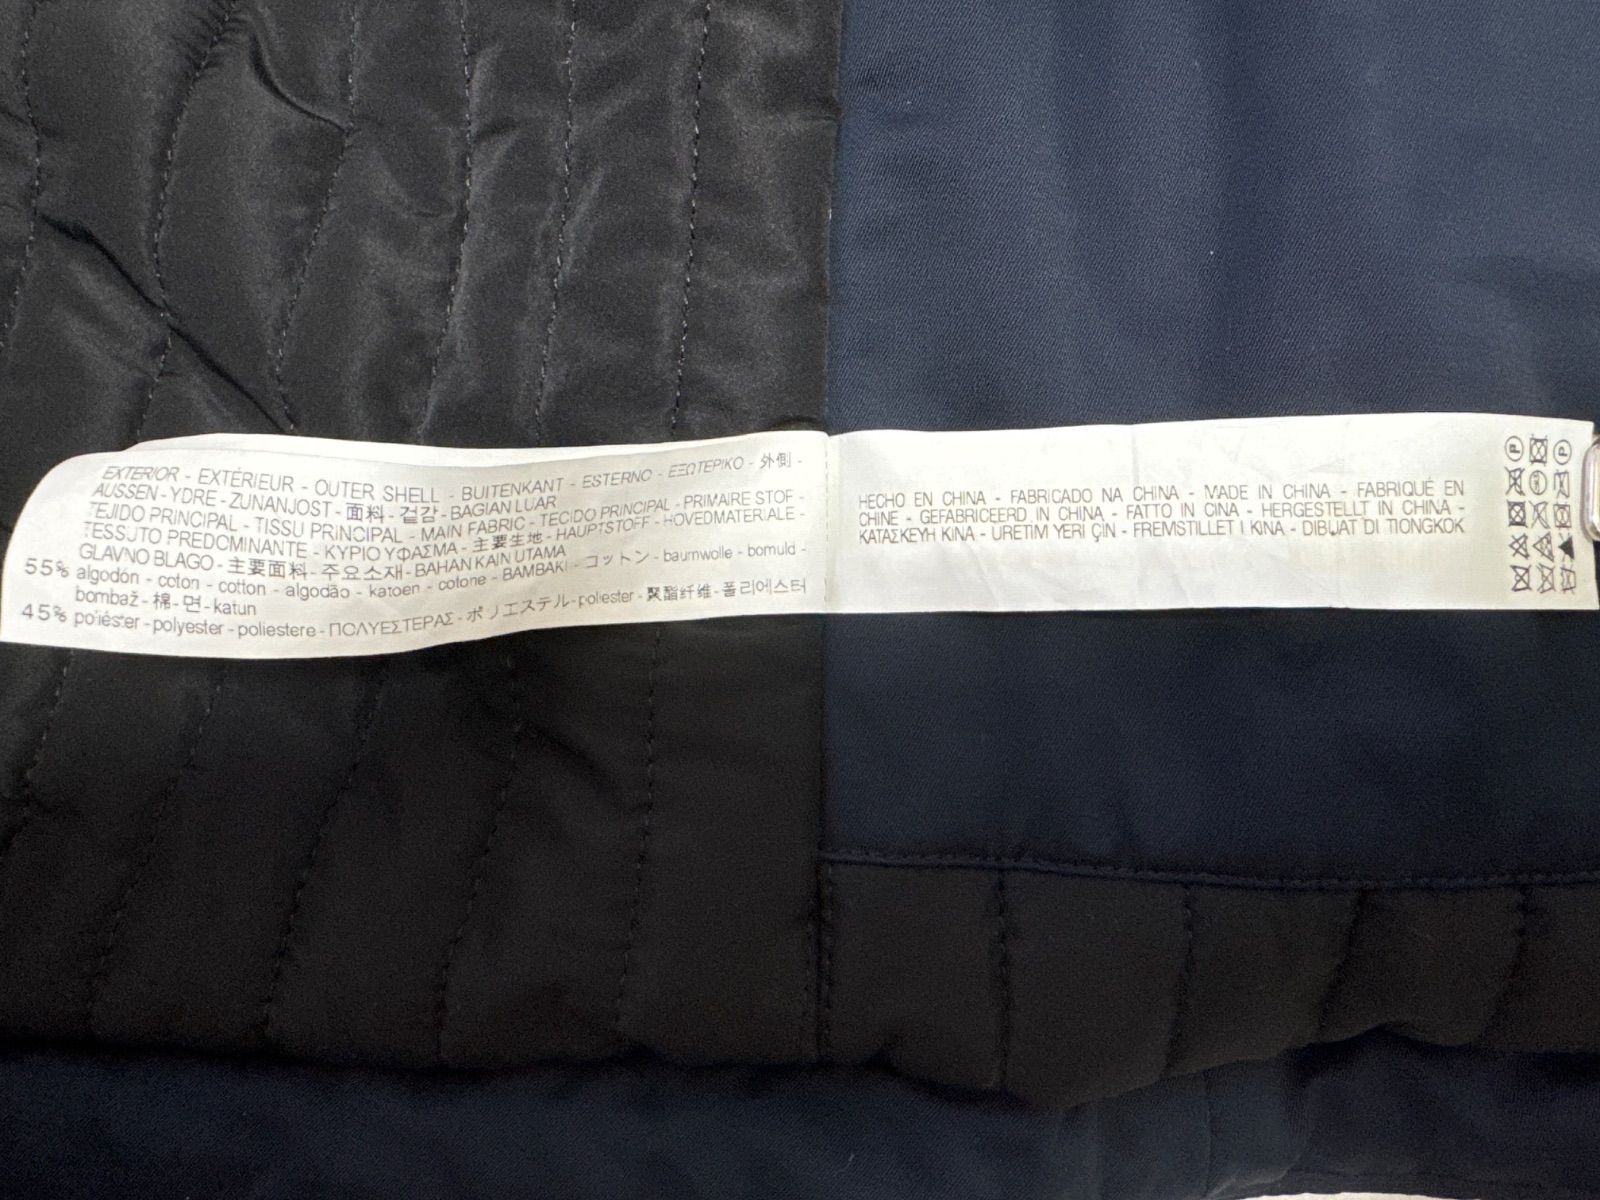 EXTERIOR - EXTÉRIEUR - OUTER SHELL - BUITENKANT - ESTERNO - ΕΞΩΤΕΡΙΚΟ - 外側 -
AUSSEN - YDRE - ZUNANJOST - 面料 - 겉감 - BAGIAN LUAR
TEJIDO PRINCIPAL - TISSU PRINCIPAL - MAIN FABRIC - TECIDO PRINCIPAL - PRIMAIRE STOF -
TESSUTO PREDOMINANTE - ΚΥΡΙΟ ΥΦΑΣΜΑ - 主要生地 - HAUPTSTOFF - HOVEDMATERIALE -
GLAVNO BLAGO - 主要面料 - 주요소재 - BAHAN KAIN UTAMA
55% algodón - coton - cotton - algodão - katoen - cotone - ΒΑΜΒΑΚΙ - コットン - baumwolle - bomuld -
bombaž - 棉 - 면 - katun
45% poliéster - polyester - poliestere - ΠΟΛΥΕΣΤΕΡΑΣ - ポリエステル - poliester - 聚酯纤维 - 폴리에스터
HECHO EN CHINA - FABRICADO NA CHINA - MADE IN CHINA - FABRIQUÉ EN
CHINE - GEFABRICEERD IN CHINA - FATTO IN CINA - HERGESTELLT IN CHINA -
ΚΑΤΑΣΚΕΥΗ ΚΙΝΑ - ÜRETİM YERİ ÇİN - FREMSTILLET I KINA - DIBUAT DI TIONGKOK
P P